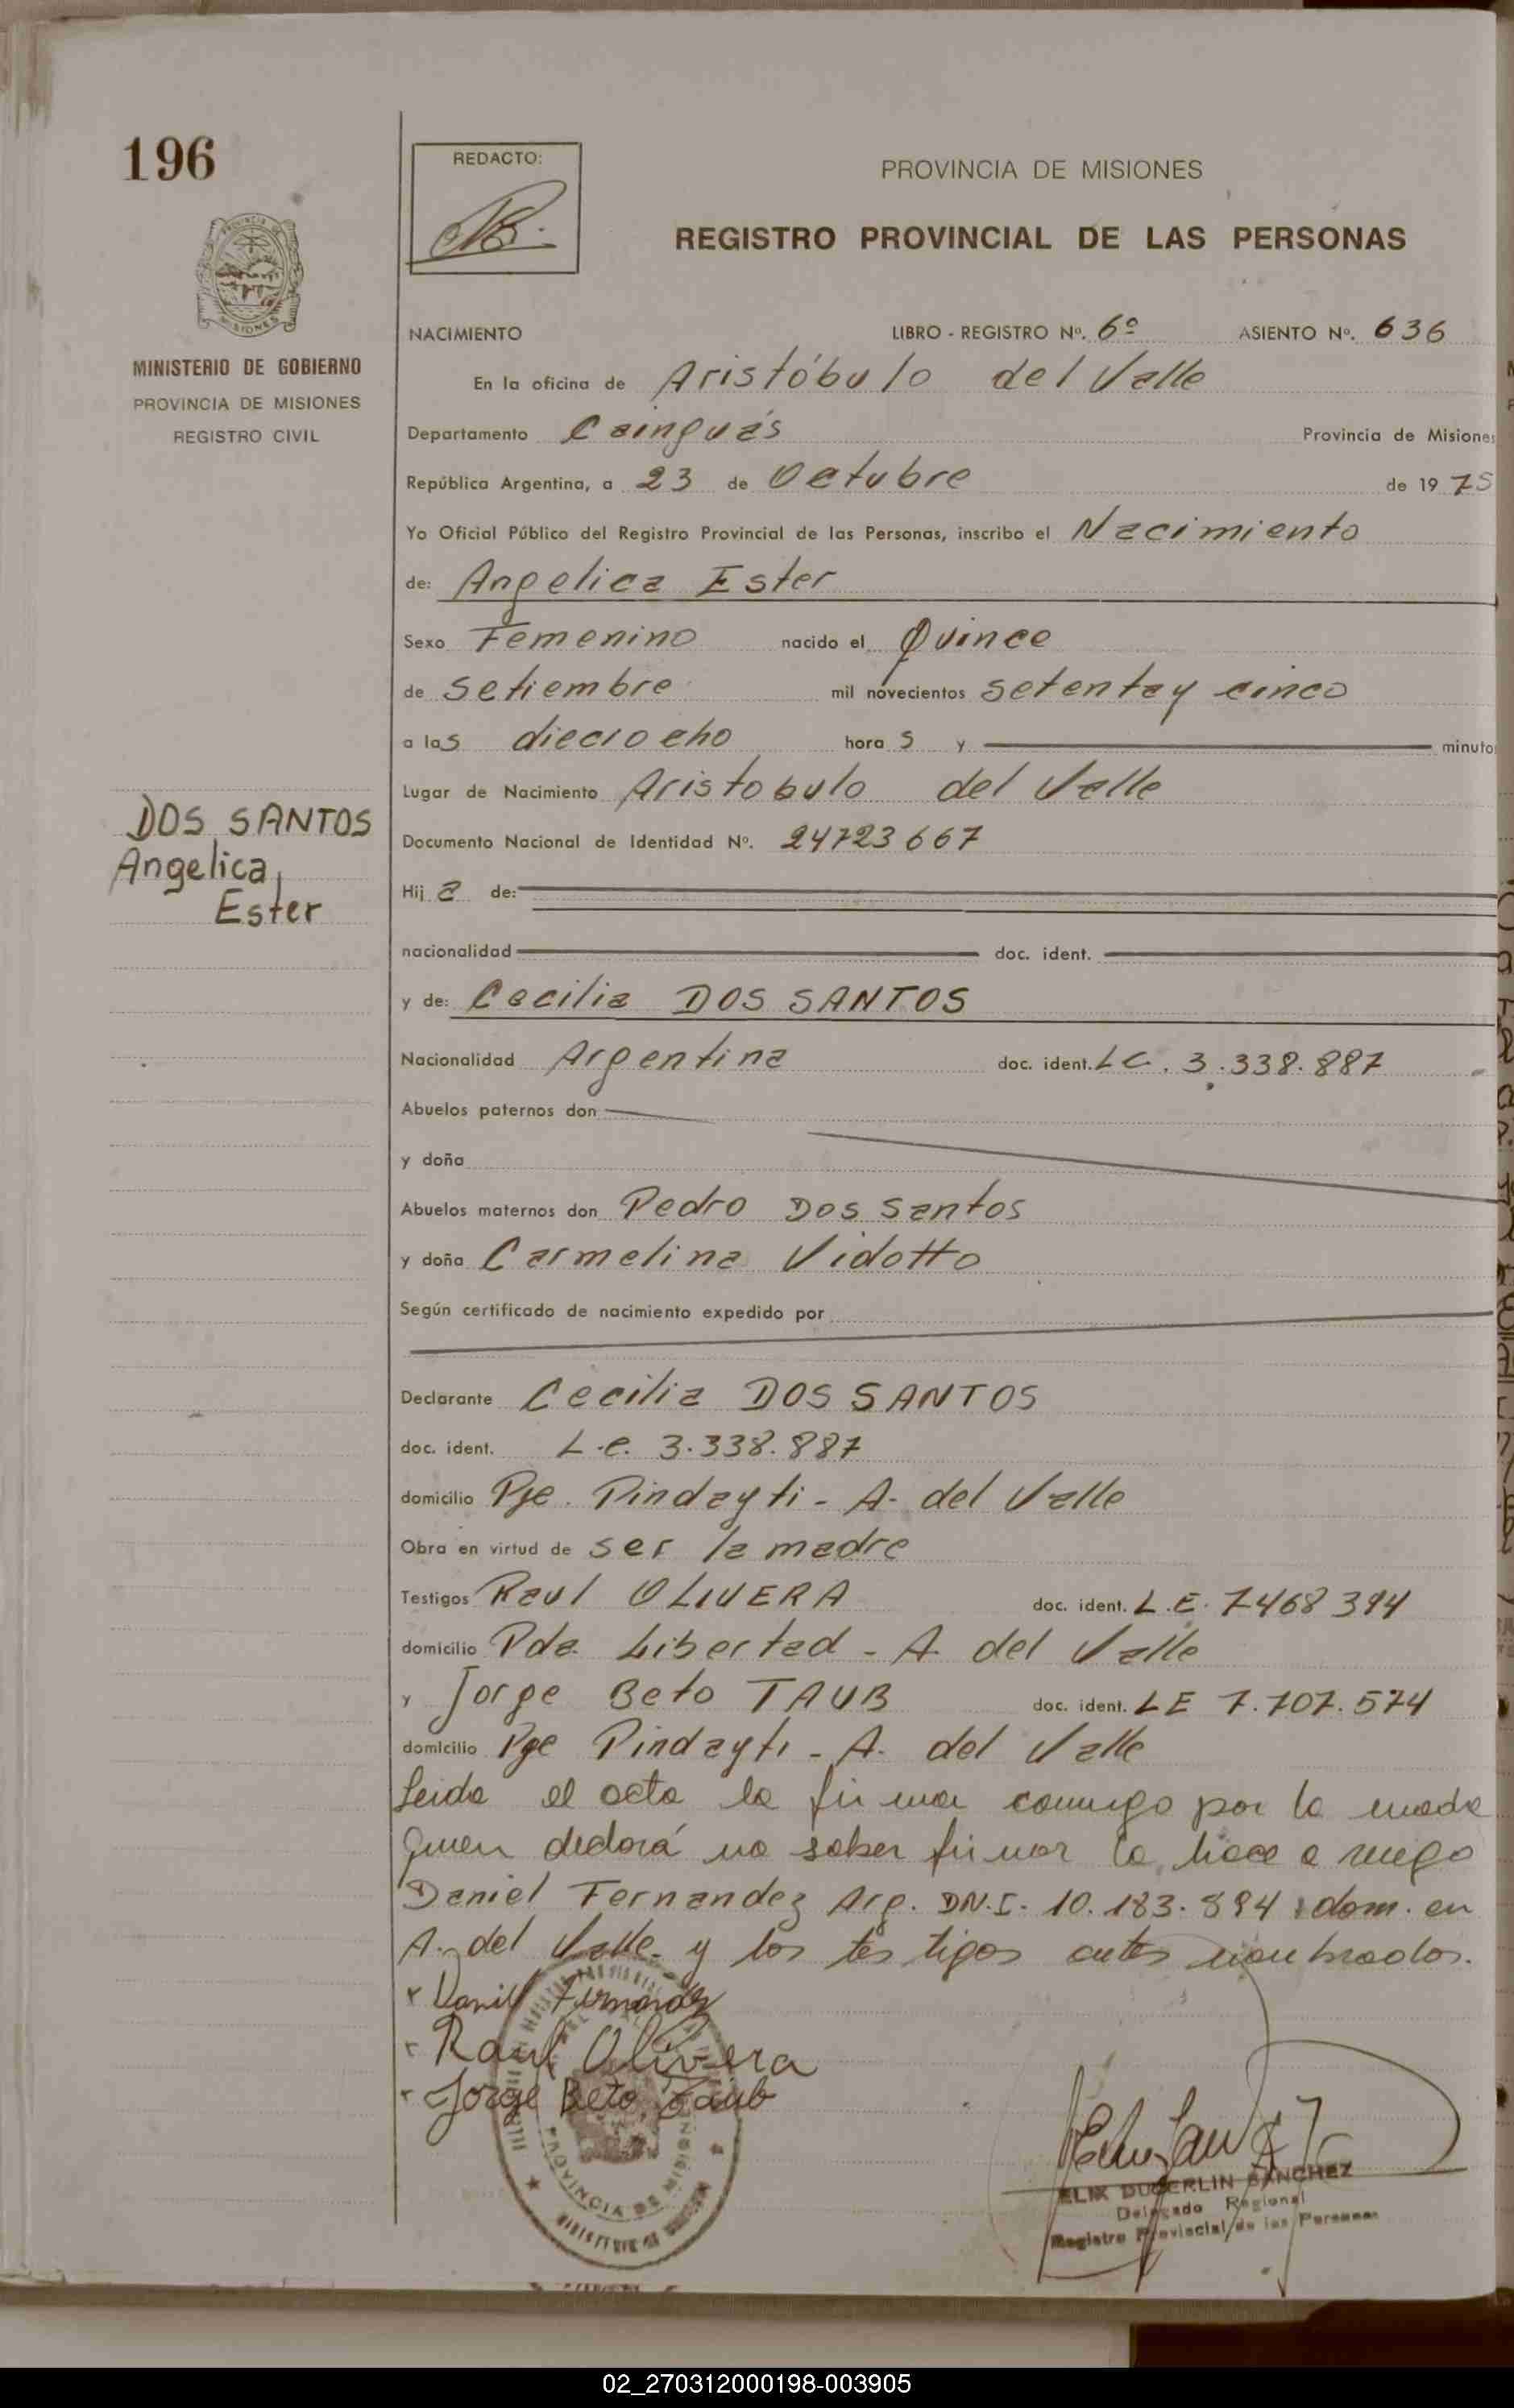 196
REDACTO:
PROVINCIA DE MISIONES
REGISTRO PROVINCIAL DE LAS PERSONAS
MISIONES
MINISTERIO DE GOBIERNO
PROVINCIA DE MISIONES
REGISTRO CIVIL
NACIMIENTO LIBRO - REGISTRO Nº. 6º ASIENTO Nº. 636
En la oficina de Aristóbulo del Valle
Departamento Cainguás Provincia de Misiones
República Argentina, a 23 de Octubre de 1975
Yo Oficial Público del Registro Provincial de las Personas, inscribo el Nacimiento
de: Angelica Ester
Sexo Femenino nacido el Quince
de setiembre mil novecientos setenta y cinco
a las dieciocho horas y minuto
Lugar de Nacimiento Aristobulo del Valle
DOS SANTOS
Angelica
Ester
Documento Nacional de Identidad Nº. 24723667
Hija de:
nacionalidad doc. ident.
y de: Cecilia DOS SANTOS
Nacionalidad Argentina doc. ident. LC. 3.338.887
Abuelos paternos don
y doña
Abuelos maternos don Pedro Dos Santos
y doña Carmelina Vidotto
Según certificado de nacimiento expedido por
Declarante Cecilia DOS SANTOS
doc. ident. L.C. 3.338.887
domicilio Pje. Pindayti - A. del Valle
Obra en virtud de ser la madre
Testigos Raul OLIVERA doc. ident. L.E. 7468394
domicilio Pda. Libertad - A. del Valle
y Jorge Beto TAUB doc. ident. LE 7.707.574
domicilio Pje Pindayti - A. del Valle
Leida el acta la firma conmigo por la madre
quien declará no saber firmar la hace a ruego
Daniel Fernandez Arg. DN.I. 10.183.894 dom. en
A. del Valle y los testigos antes nombrados.
Daniel Fernandez
Raul Olivera
Jorge Beto Taub
PROVINCIA DE MISIONES
SANCHEZ
Delegado Regional
Registro Provincial de las Personas
02_270312000198-003905